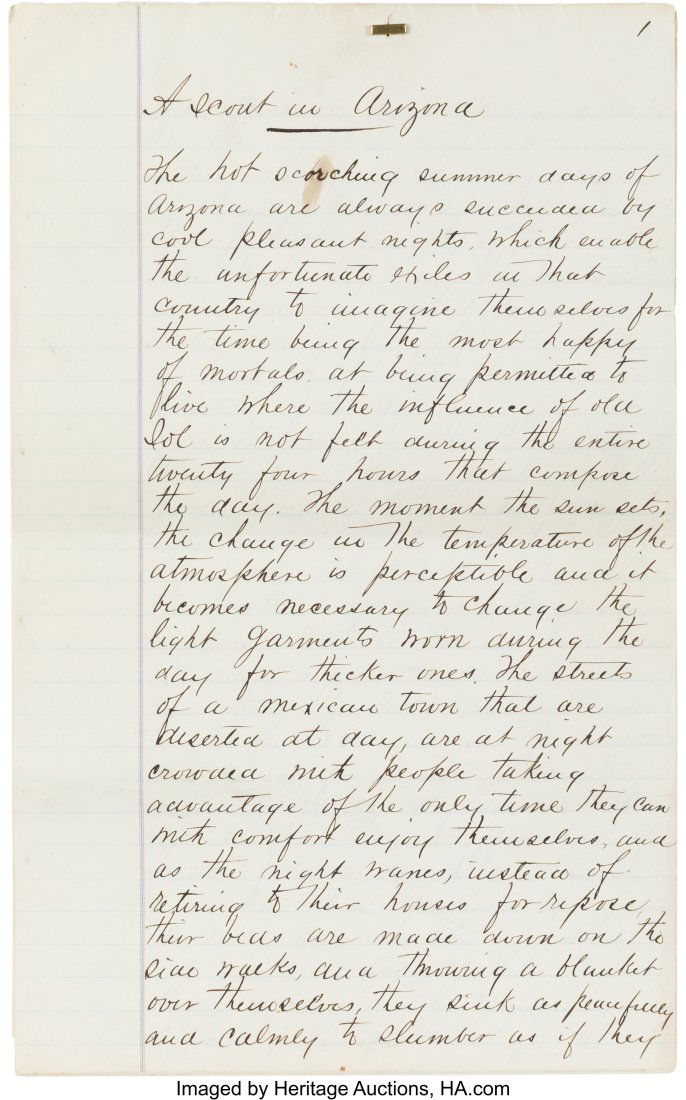 1
A Scout in Arizona
The hot scorching summer days of
Arizona are always succeeded by
cool pleasant nights, which enable
the unfortunate exiles in that
country to imagine themselves for
the time being the most happy
of mortals. at being permitted to
live where the influence of old
Sol is not felt during the entire
twenty four hours that compose
the day. The moment the sun sets,
the change in the temperature of the
atmosphere is perceptible and it
becomes necessary to change the
light garments worn during the
day for thicker ones. The streets
of a mexican town that are
deserted at day, are at night
crowded with people taking
advantage of the only time they can
with comfort enjoy themselves, and
as the night wanes, instead of
retiring to their houses for repose,
their beds are made down on the
side walks, and throwing a blanket
over themselves, they sink as peacefully
and calmly to slumber as if they
Imaged by Heritage Auctions, HA.com